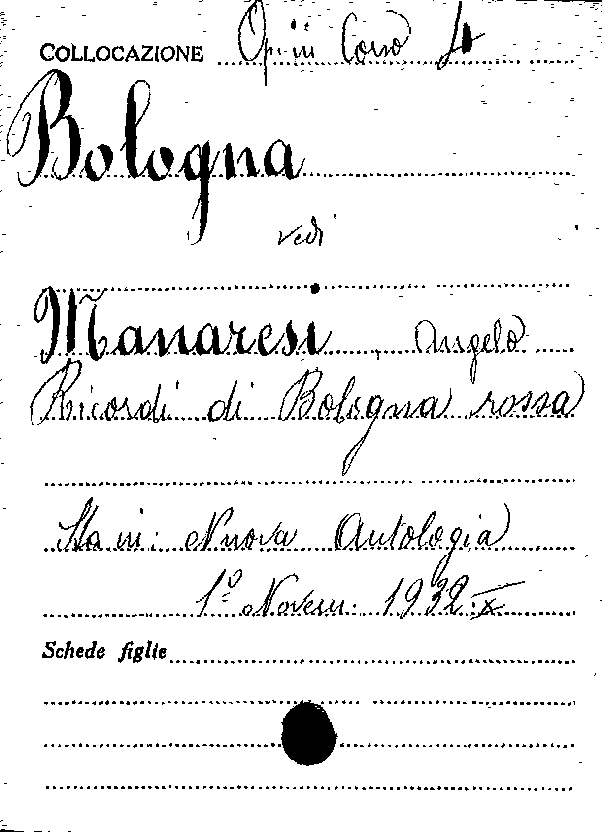 COLLOCAZIONE Op. in Corso 4
Bologna
vedi
Manaresi, Angelo
Ricordi di Bologna rossa
Sta in: Nuova Antologia
1º Novem. 1932 X
Schede figlie